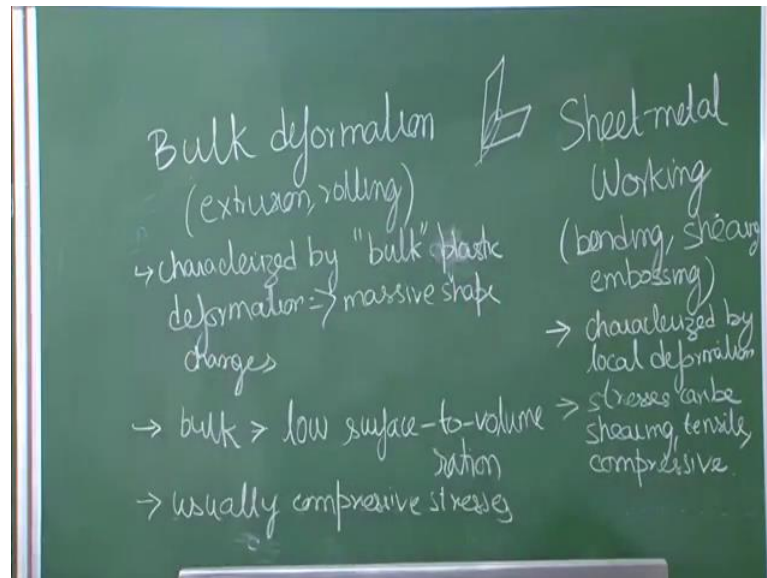 Bulk deformation
(extrusion, rolling)
↳ characterized by "bulk" plastic
deformation => massive shape
changes
→ bulk > low surface-to-volume
ration
→ usually compressive stresses
Sheet-metal
Working
(bending, shearing
embossing)
→ characterized by
local deformation
→ stresses can be
shearing, tensile,
compressive